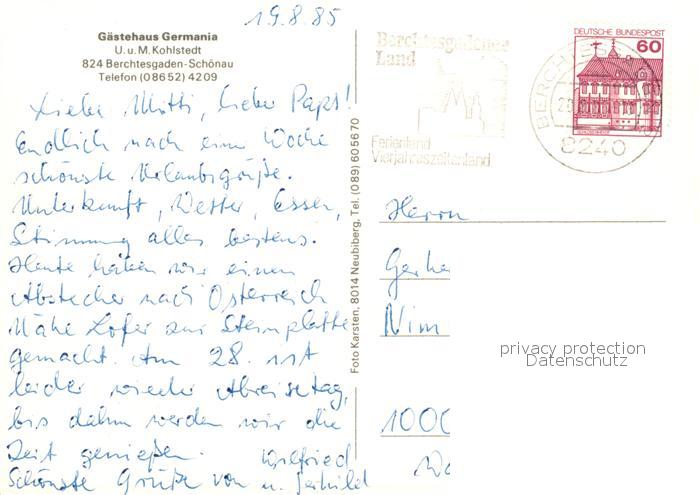 19.8.85
Gästehaus Germania
U. u. M. Kohlstedt
824 Berchtesgaden-Schönau
Telefon (0 86 52) 42 09
Liebe Mutti, lieber Paps!
Endlich nach einer Woche
schönste Urlaubsgrüße.
Unterkunft, Wetter, Essen,
Stimmung alles bestens.
Heute haben wir einen
Abstecher nach Österreich
Nähe Lofer zur Steinplatte
gemacht. Am 28. ist
leider wieder Abreisetag,
bis dahin werden wir die
Zeit genießen.
Schönste Grüße von Wilfried
u. Gerhild
Foto Karsten, 8014 Neubiberg, Tel. (089) 605670
Berchtesgadener
Land
Ferienland
Vierjahreszeitenland
BERCHTESG
8240
DEUTSCHE BUNDESPOST
60
Herrn
Gerha
Nim
1000
privacy protection
Datenschutz